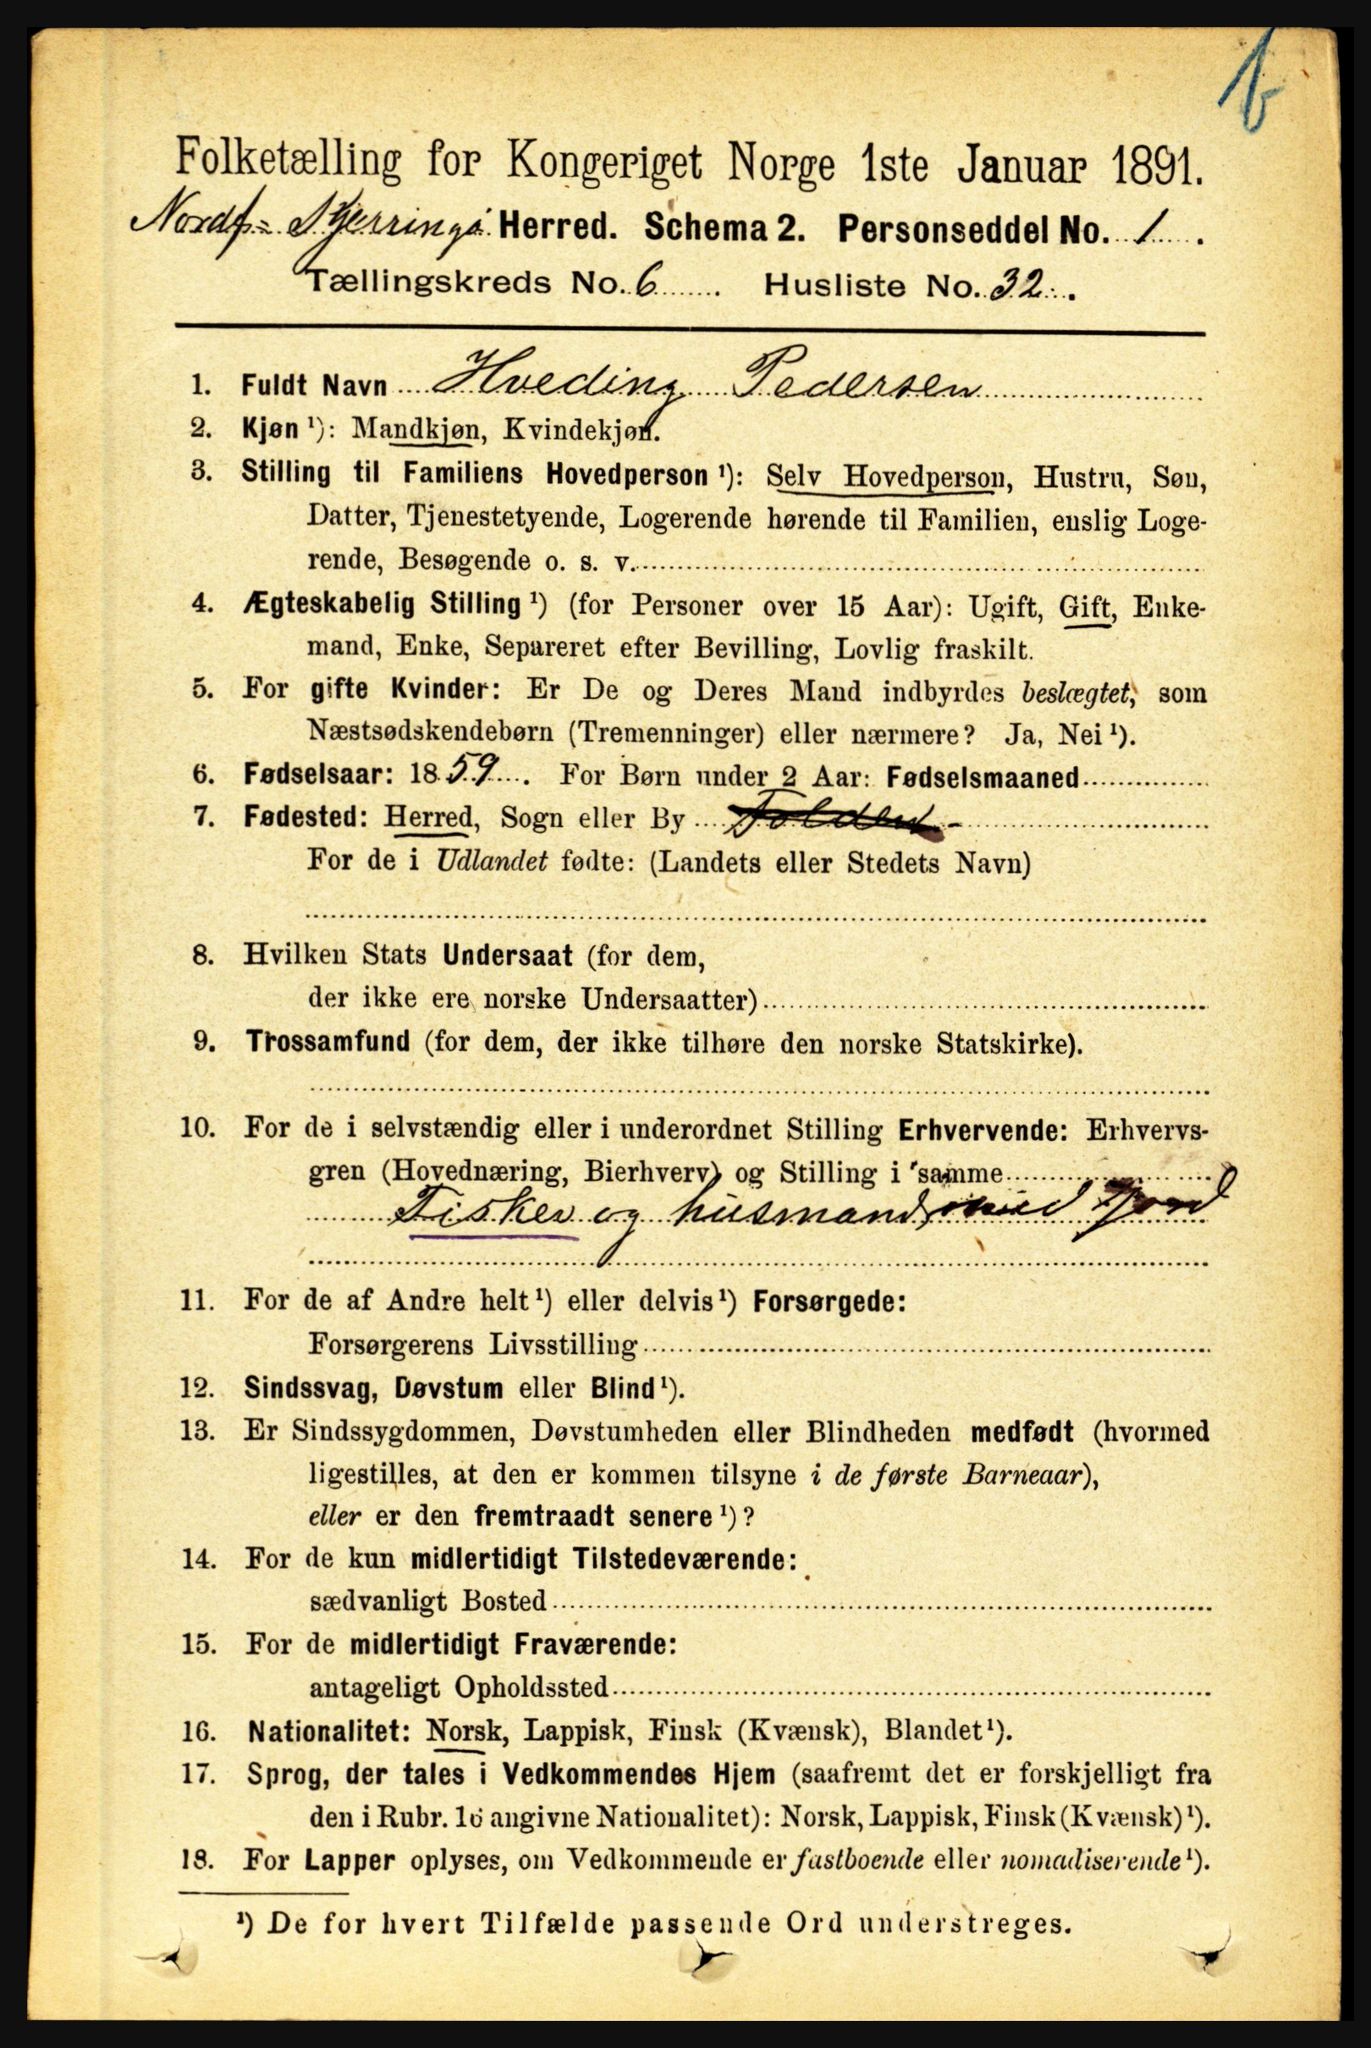 b
Folketælling for Kongeriget Norge 1ste Januar 1891.
Nordf.= Kjerringø Herred. Schema 2. Personseddel No. 1.
Tællingskreds No. 6. Husliste No. 32.
1. Fuldt Navn Hveding Pedersen
2. Kjøn ¹): Mandkjøn, Kvindekjøn.
3. Stilling til Familiens Hovedperson ¹): Selv Hovedperson, Hustru, Søn,
Datter, Tjenestetyende, Logerende hørende til Familien, enslig Loge-
rende, Besøgende o. s. v.
4. Ægteskabelig Stilling ¹) (for Personer over 15 Aar): Ugift, Gift, Enke-
mand, Enke, Separeret efter Bevilling, Lovlig fraskilt.
5. For gifte Kvinder: Er De og Deres Mand indbyrdes beslægtet, som
Næstsødskendebørn (Tremenninger) eller nærmere? Ja, Nei ¹).
6. Fødselsaar: 1859. For Børn under 2 Aar: Fødselsmaaned
7. Fødested: Herred, Sogn eller By Folden
For de i Udlandet fødte: (Landets eller Stedets Navn)
8. Hvilken Stats Undersaat (for dem,
der ikke ere norske Undersaatter)
9. Trossamfund (for dem, der ikke tilhøre den norske Statskirke).
10. For de i selvstændig eller i underordnet Stilling Erhvervende: Erhvervs-
gren (Hovednæring, Bierhverv) og Stilling i samme
Fisker og husmand med Jord
11. For de af Andre helt ¹) eller delvis ¹) Forsørgede:
Forsørgerens Livsstilling
12. Sindssvag, Døvstum eller Blind ¹).
13. Er Sindssygdommen, Døvstumheden eller Blindheden medfødt (hvormed
ligestilles, at den er kommen tilsyne i de første Barneaar),
eller er den fremtraadt senere ¹)?
14. For de kun midlertidigt Tilstedeværende:
sædvanligt Bosted
15. For de midlertidigt Fraværende:
antageligt Opholdssted
16. Nationalitet: Norsk, Lappisk, Finsk (Kvænsk), Blandet ¹).
17. Sprog, der tales i Vedkommendes Hjem (saafremt det er forskjelligt fra
den i Rubr. 16 angivne Nationalitet): Norsk, Lappisk, Finsk (Kvænsk) ¹).
18. For Lapper oplyses, om Vedkommende er fastboende eller nomadiserende ¹).
¹) De for hvert Tilfælde passende Ord understreges.